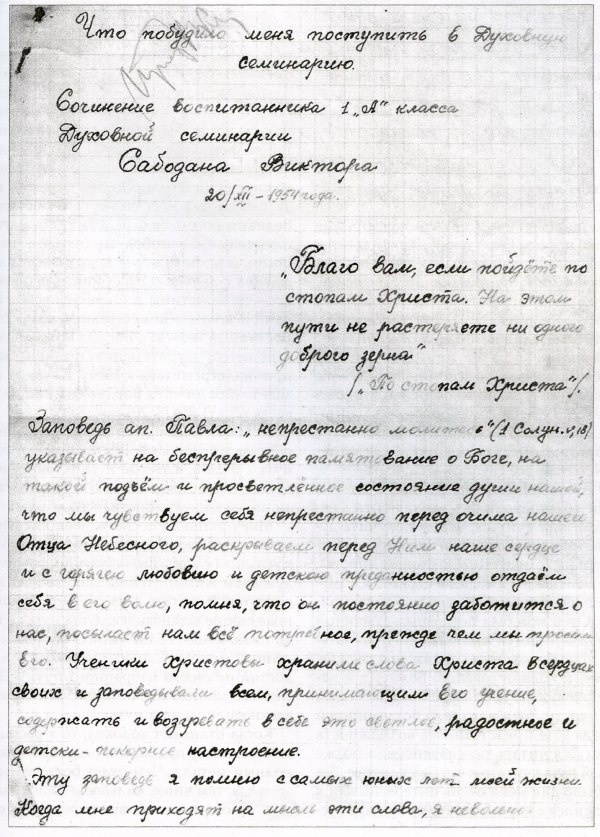 Что побудило меня поступить в Духовную
семинарию.
Сочинение воспитанника 1 „А" класса
Духовной семинарии
Сабодана Виктора
20/XII – 1954 года.
„Благо вам, если пойдёте по
стопам Христа. На этом
пути не растеряете ни одного
доброго зерна"
/„По стопам Христа"/.
Заповедь ап. Павла: „непрестанно молитесь" (1 Солун. V, 18)
указывает на беспрерывное памятование о Боге, на
такой подъём и просветлённое состояние души нашей,
что мы чувствуем себя непрестанно перед очима нашего
Отца Небесного, раскрываем перед Ним наше сердце
и с горячею любовию и детскою преданностью отдаём
себя в его волю, помня, что он постоянно заботится о
нас, посылает нам всё потребное, прежде чем мы просим
Его. Ученики Христовы хранили слова Христа в сердцах
своих и заповедывали всем, принимающим Его учение,
содержать и возгревать в себе это светлое, радостное и
детски-покорное настроение.
Эту заповедь я помню с самых юных лет моей жизни.
Когда мне приходят на мысль эти слова, я невольно